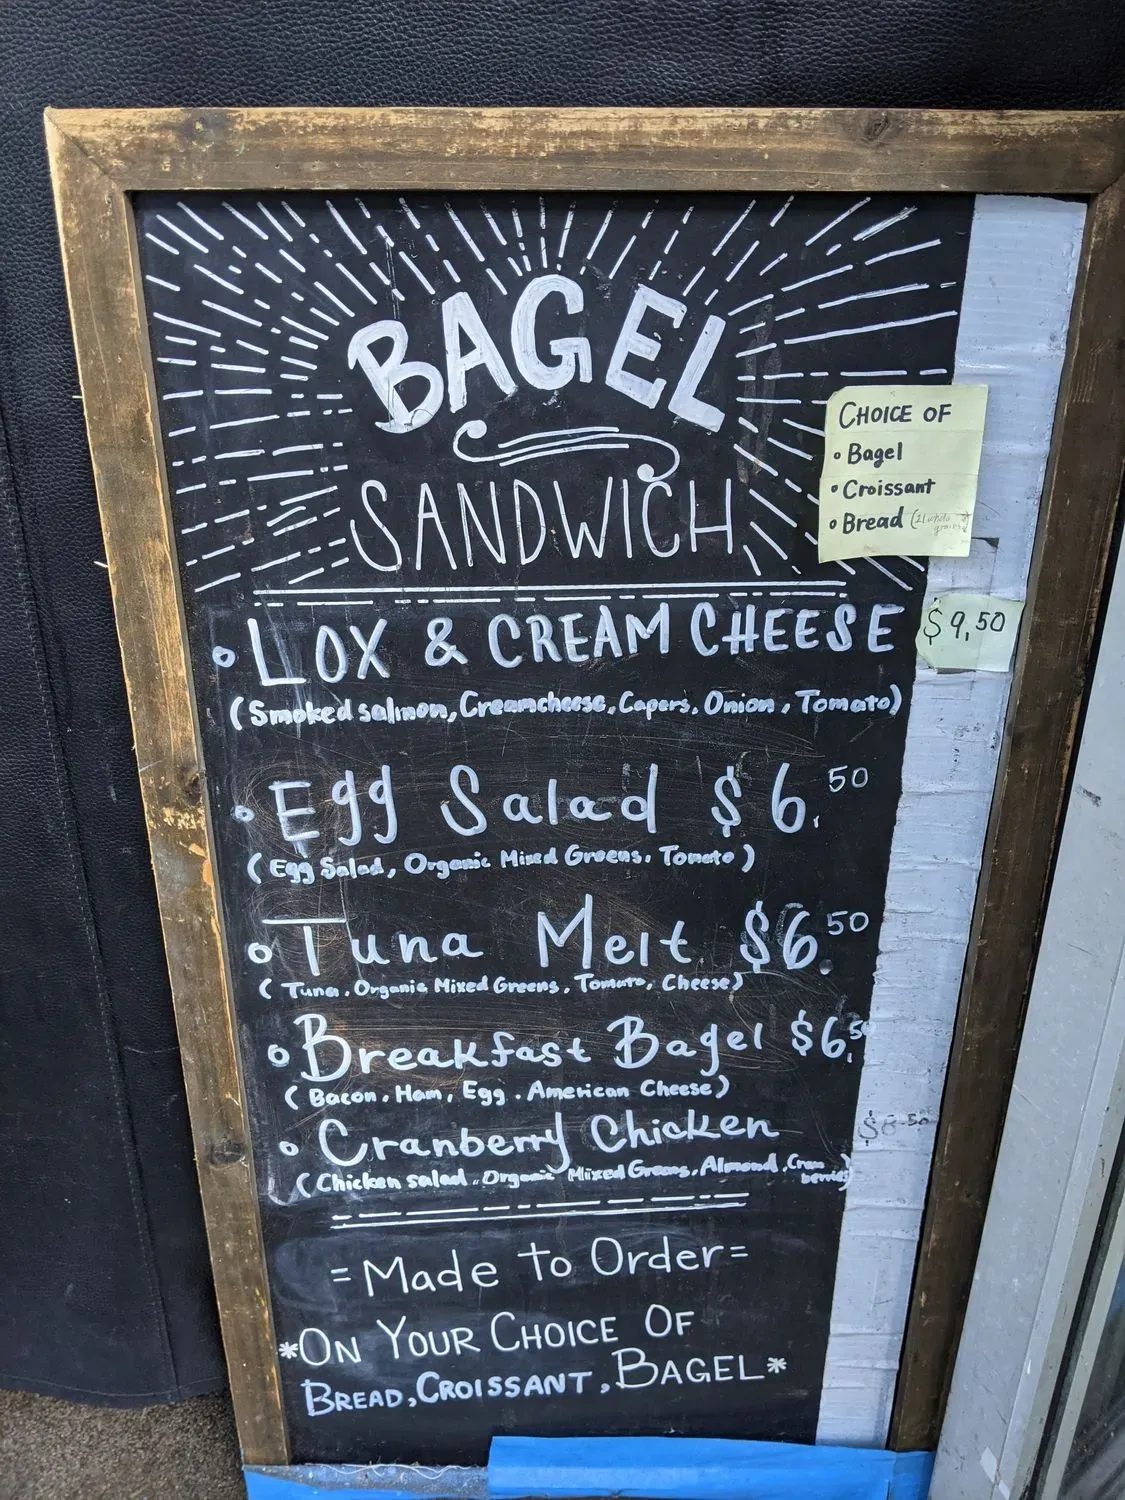 BAGEL
SANDWICH
CHOICE OF
• Bagel
• Croissant
• Bread (21 whole grains)
• LOX & CREAM CHEESE $9.50
(Smoked salmon, Creamcheese, Capers, Onion, Tomato)
• Egg Salad $6.50
(Egg Salad, Organic Mixed Greens, Tomato)
• Tuna Melt $6.50
(Tuna, Organic Mixed Greens, Tomato, Cheese)
• Breakfast Bagel $6.50
(Bacon, Ham, Egg, American Cheese)
• Cranberry Chicken
(Chicken salad, Organic Mixed Greens, Almond, Cranberries)
=Made to Order=
*ON YOUR CHOICE OF
BREAD, CROISSANT, BAGEL*